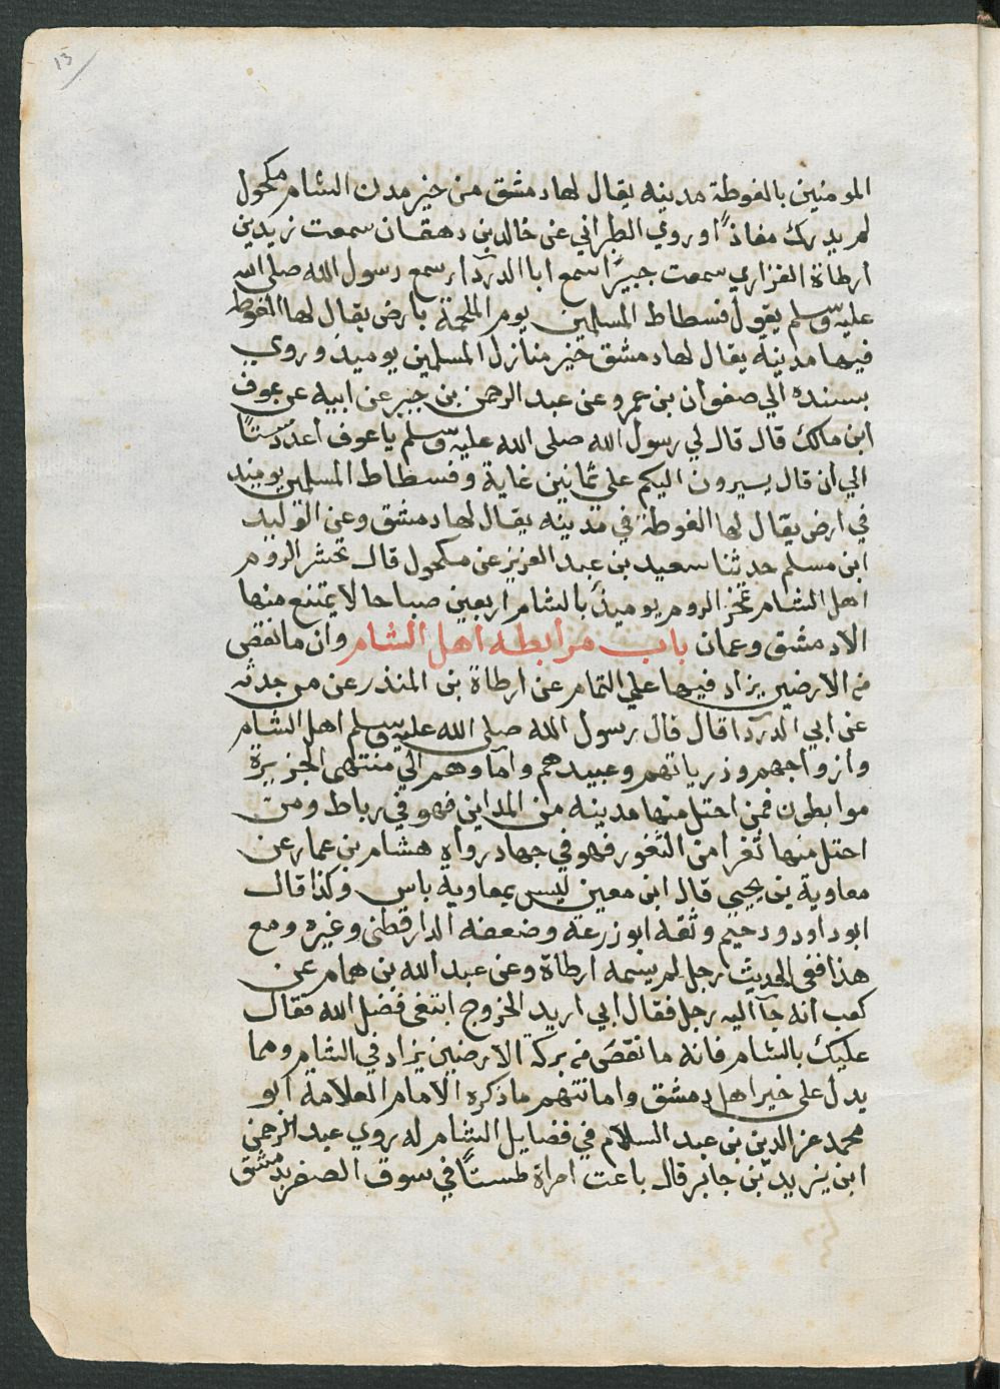 13
المومنين بالغوطة مدينه يقال لها دمشق من خير مدن الشام مكحول
لم يدرك معاذًا وروي الطبراني عن خالد بن دهقان سمعت زيد بن
ارطاة الفزاري سمعت جبيرًا سمع ابا الدرداء سمع رسول الله صلى الله
عليه وسلم يقول فسطاط المسلمين يوم الملحمة بارض يقال لها الغوطة
فيها مدينة يقال لها دمشق خير منازل المسلمين يوميذ وروي
بسنده الي صفوان بن عمرو عن عبد الرحمن بن جبير عن ابيه عن عوف
ابن مالك قال قال لي رسول الله صلى الله عليه وسلم يا عوف اعدد ستًا
الي ان قال يسيرون اليكم على ثمانين غاية وفسطاط المسلمين يوميذ
في ارض يقال لها الغوطة في مدينه يقال لها دمشق وعن الوليد
ابن مسلم حدثنا سعيد بن عبد العزيز عن مكحول قال تحشر الروم
اهل الشام تمخر الروم يوميذ بالشام اربعين صباحا لا يمتنع منها
الا دمشق وعمان باب مرابطه اهل الشام وان ما نقص
من الارضين يزاد فيها علي التمام عن ارطاة بن المنذر عن من حدثه
عن ابي الدردا قال قال رسول الله صلى الله عليه وسلم اهل الشام
وازواجهم وذرياتهم وعبيدهم واماوهم الي منتهى الجزيرة
مرابطون فمن احتل منها مدينه من المداين فهو في رباط ومن
احتل منها ثغرا من الثغور فهو في جهاد رواه هشام بن عمار عن
معاوية بن يحيي قال ابن معين ليس بمعاوية باس وكذا قال
ابو داود ودحيم وثقه ابو زرعة وضعفه الدارقطنى وغيره ومع
هذا ففى الحديث رجل لم يسمه ارطاة وعن عبد الله بن همام عن
كعب انه جآ اليه رجل فقال اني اريد الخروج ابتغى فضل الله فقال
عليك بالشام فانه ما نقص من بركة الارضين يزاد في الشام ومما
يدل على خير اهل دمشق وامانتهم ما ذكره الامام العلامة ابو
محمد عز الدين بن عبد السلام في فضايل الشام له روي عبد الرحمن
ابن يزيد بن جابر قال باعت امراة طستًا في سوق الصفر بدمشق